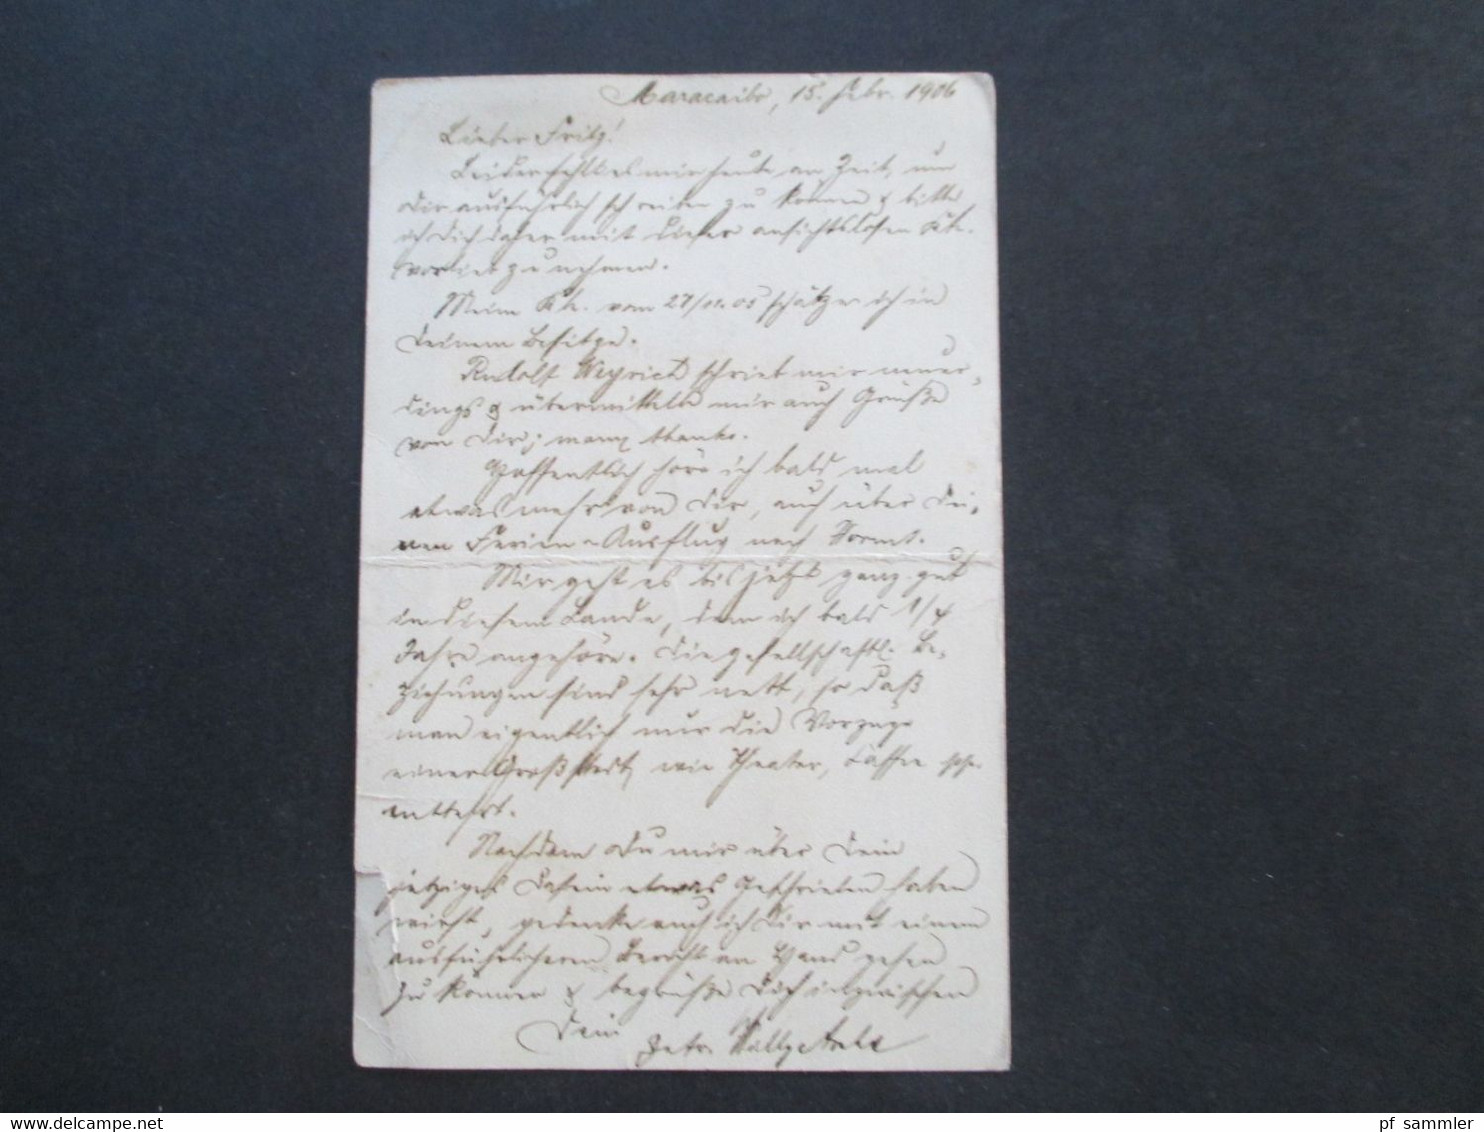 Maracaibo, 15. Febr. 1906
Lieber Fritz!
Leider fehlt es mir heute an Zeit, um
Dir ausführlich schreiben zu können & bitte
ich Dich daher mit dieser ansichtslosen Kte.
vorlieb zu nehmen.
Meine Kte. vom 27/11.05 schätze ich in
Deinem Besitze.
Rudolf Weyrich schrieb mir neuer-
dings & übermittelte mir auch Grüße
von Dir; many thanks.
Hoffentlich höre ich bald mal
etwas mehr von Dir, auch über Dei-
nen Ferien-Ausflug nach
Mir geht es bis jetzt ganz gut
in diesem Lande, dem ich bald 1/4
Jahre angehöre. Die gesellschaftl. Be-
ziehungen sind sehr nett, so daß
man eigentlich nur die Vorzüge
einer Großstadt, wie Theater,
entbehrt.
Nachdem Du mir über Dein
jetziges Dasein etwas geschrieben haben
wirst, gedenke auch ich Dir mit einem
ausführlicheren Bericht an Hand gehen
zu können & begrüße Dich inzwischen
Dein